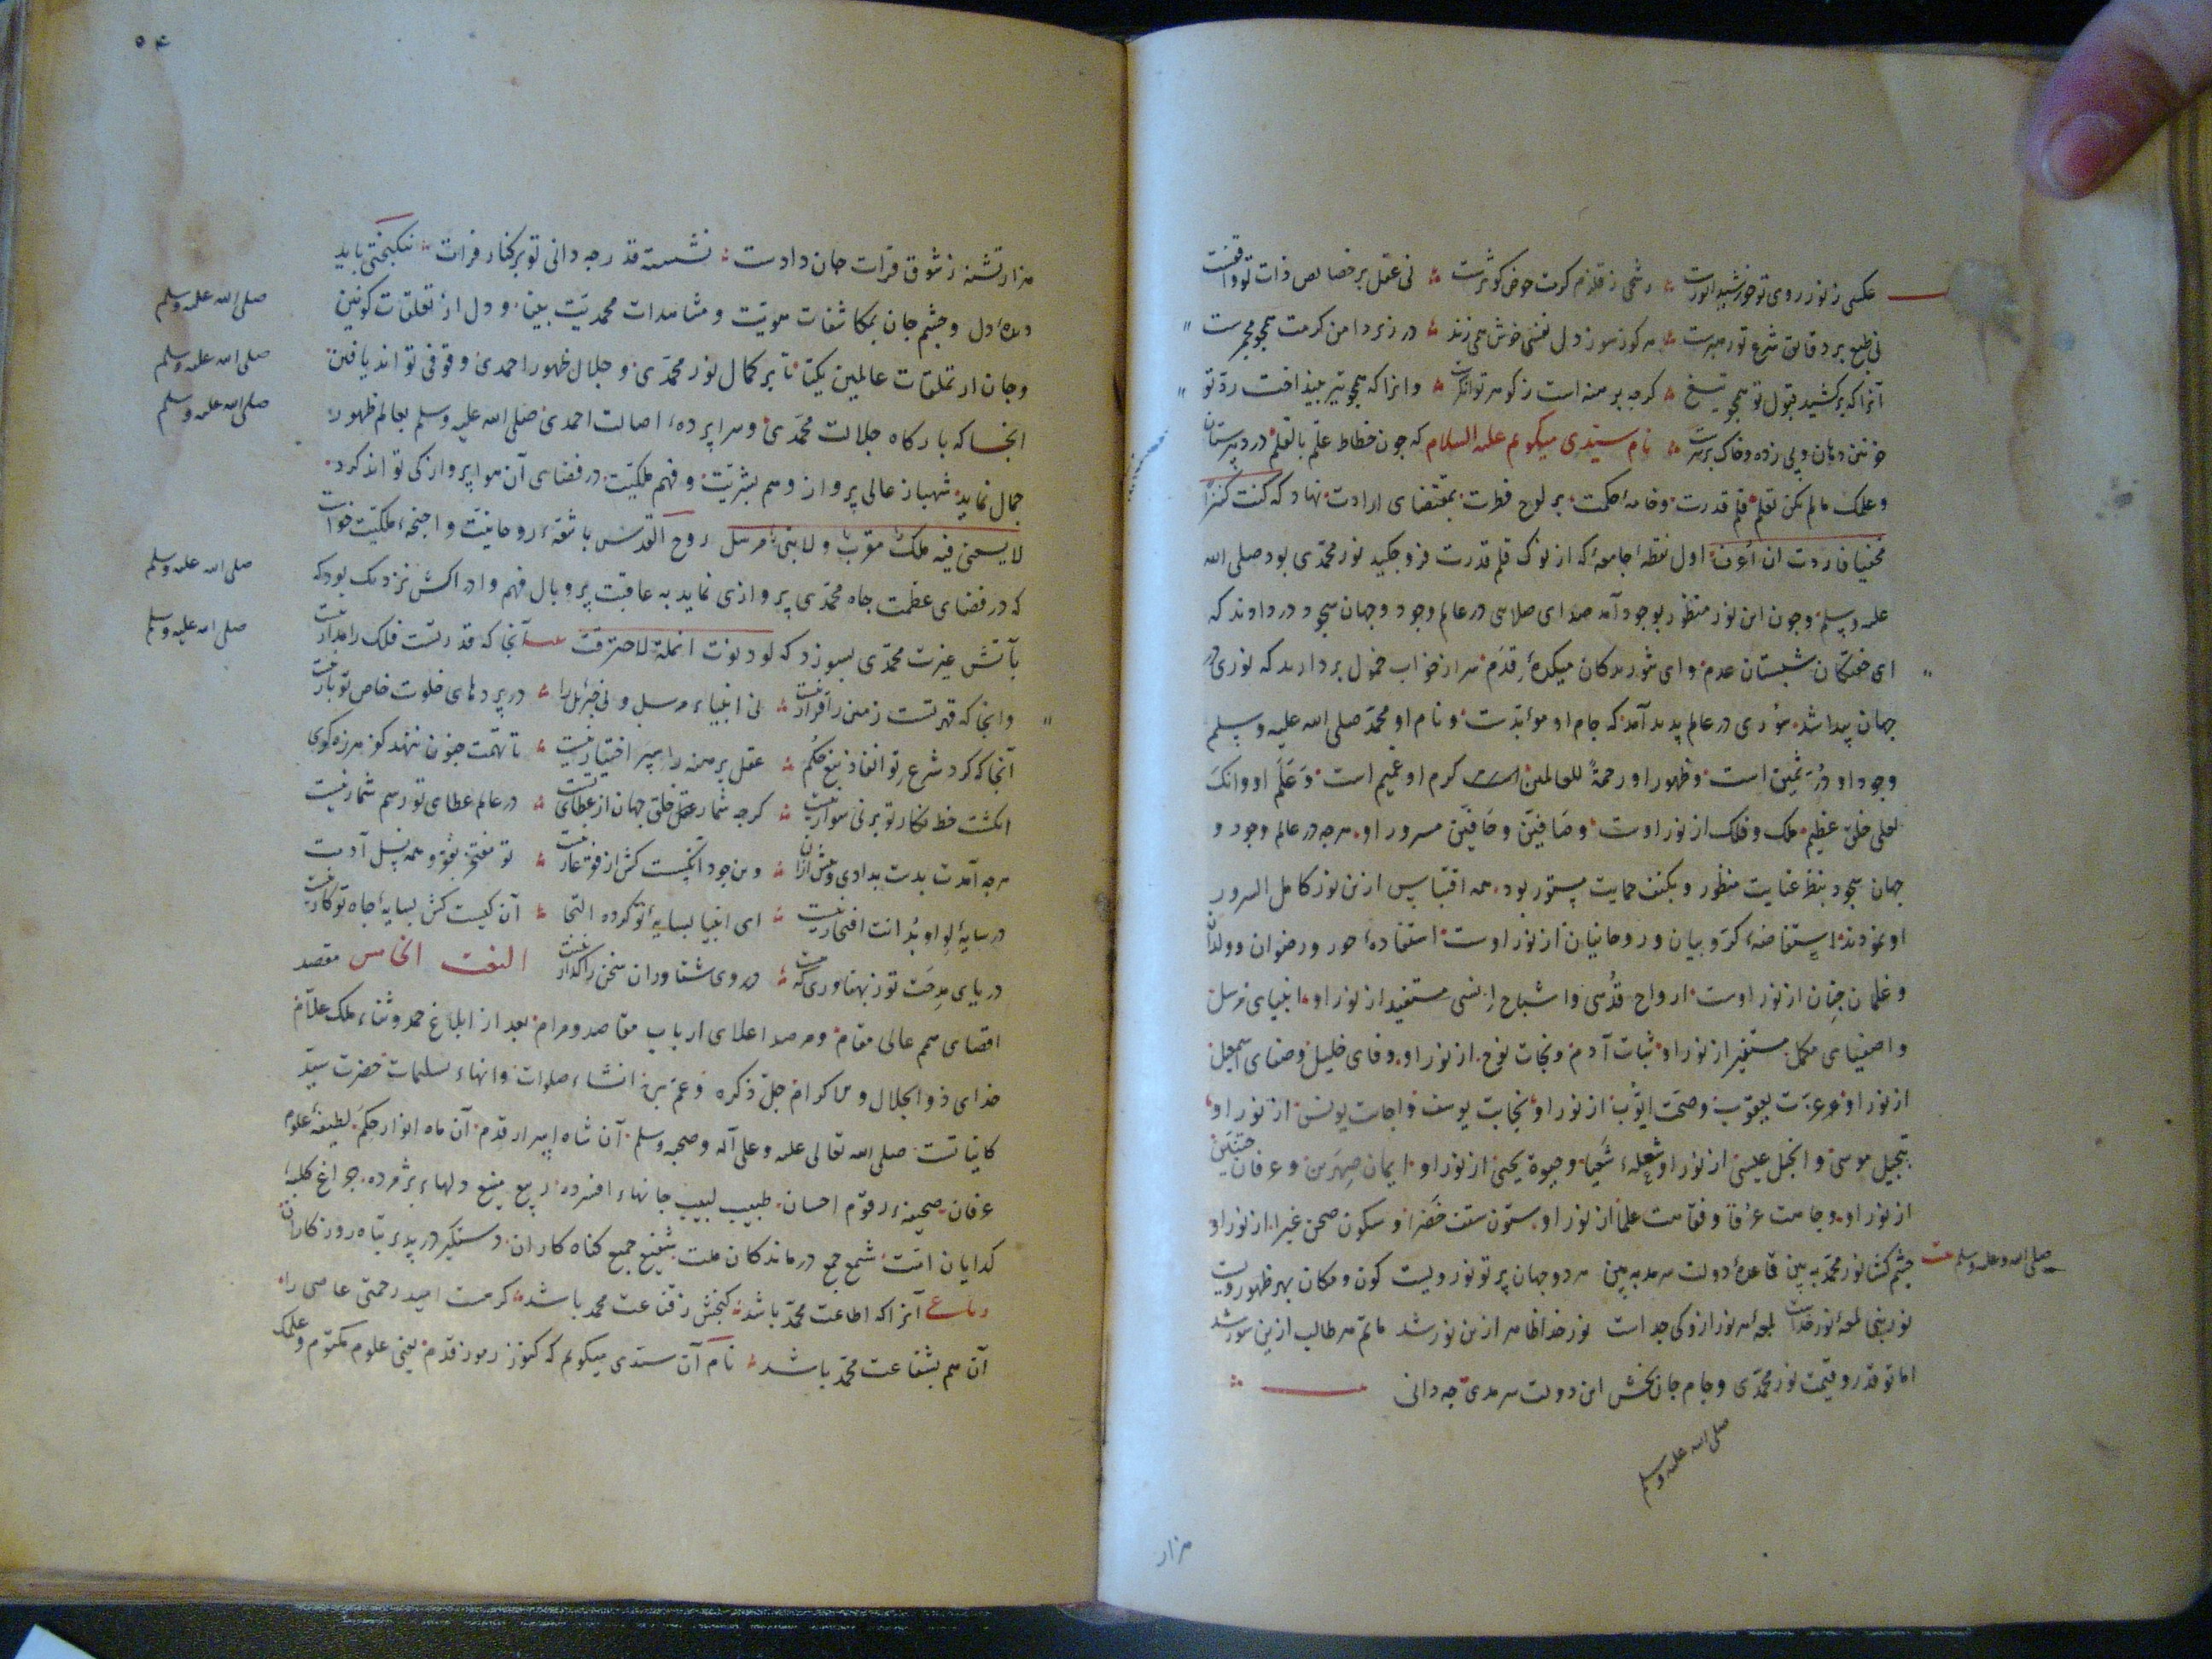 عکسی ز نور روی تو خورشید انورست رشحی ز قلزم کرمت حوض کوثرست نی عقل بر خصایص ذات تو واقفست
نی طبع بر دقایق شرع تو رهبرست هر کو ز سوز دل نفسی خوش همی زند در زیر دامن کرمت همچو مجمرست
آنرا که برکشید قبول تو همچو تیغ کرچه برهنه است ز کوهر توانکرست وانرا که همچو تیر بینداخت رد تو
خونین دهان و پی زده و خاک بر سرست نام سیدی میکویم علیه السلام که چون خطاط علّم بالقلم در دبیرستان
و علمک مالم تکن تعلم قلم قدرت و خامهٔ حکمت بر لوح فطرت بمقتضای ارادت نهاد که کنت کنزا
مخفیا فاردت ان اُعرف اول نقطهٔ جامعه که از نوک قلم قدرت فرو چکید نور محمدی بود صلی الله
علیه وسلم و چون این نور منظور بوجود آمد صدای صلای در عالم وجود و جهان سجود در دادند که
ای خفتکان شبستان عدم و ای شوریدکان میکدهٔ قدم سر از خواب خمول بردارید که نوری در
جهان پیدا شد سوری در عالم پدید آمد که جام او مؤبدست و نام او محمد صلی الله علیه وسلم
وجود او دُرّ ثمین است و ظهور او رحمةً للعالمین است کرم او عمیم است و عَلَم او وانک
لعلی خلق عظیم ملک و فلک از نور اوست و صافین و حافین مسرور او هرچه در عالم وجود و
جهان سجود بنظر عنایت منظور و بکنف حمایت مستور بود همه اقتباس ازین نور کامل السرور
او نمودند استفاضهٔ کروبیان و روحانیان از نور اوست استفادهٔ حور و رضوان و ولدان
و غلمان جنان از نور اوست ارواح قدسی و اشباح انسی مستفید از نور او انبیای مرسل
و اصفیای مکمل مستنیر از نور او ثبات آدم و نجات نوح از نور او وفای خلیل و صفای اسمعیل
از نور او عزت یعقوب و صحت ایوب از نور او نجابت یوسف و اجابت یونس از نور او
تبجیل موسی و انجیل عیسی از نور او شعلهٔ شعیا و حیوة یحیی از نور او ایمان صهرین و عرفان ختنین
از نور او وجاهت عرفا و فقاهت علما از نور او ستون سقف خضرا و سکون صحن غبرا از نور او
صلی الله علیه وسلم چشم کشا نور محمد ببین قاعدهٔ دولت سرمد ببین هر دو جهان پرتو نور ویست کون و مکان بهر ظهور ویست
نور نبی لمعهٔ نور خداست لمعهٔ هر نور ازو کی جداست نور خدا ظاهر ازین نور شد ماتم هر طالب ازین سور شد
اما تو قدر و قیمت نور محمدی و جام جان بخش این دولت سرمدی چه دانی
صلی الله علیه وسلم
هزار
۵۴
هزار تشنه ز شوق فرات جان دادست نشسته قدر چه دانی تو بر کنار فرات نیکبختی باید
دیدهٔ دل و چشم جان بمکاشفات هویت و مشاهدات محمدیت بینا و دل از تعلقات کونین
صلی الله علیه وسلم
و جان از تملقات عالمین یکتا تا بر کمال نور محمدی و جلال ظهور احمدی وقوفی تواند یافتن
صلی الله علیه وسلم
آنجا که بارکاه جلالت محمدی و سراپردهٔ اصالت احمدی صلی الله علیه وسلم بعالم ظهور
صلی الله علیه وسلم
جمال نماید شهباز عالی پرواز وهم بشریت و فهم ملکیت در فضای آن هوا پرواز کی تواند کرد
لا یسعنی فیه ملک مقرب ولا نبی مرسل روح القدس با شقهٔ روحانیت و اجنحهٔ ملکیت خواست
که در فضای عظمت جاه محمدی پروازی نماید به عاقبت پر و بال فهم و ادراکش نزدیک بود که
صلی الله علیه وسلم
بآتش غیرت محمدی بسوزد که لو دنوت انملة لاحترقت آنجا که قدر تست فلک را مدار نیست
صلی الله علیه وسلم
وانجا که قهر تست زمین را قرار نیست نی انبیاء مرسل و نی جبرئیل را در پردهای خلوت خاص تو بار نیست
آنجا که کرد شرع تو انفاذ تیغ حکم عقل برهنه را سپر اختیار نیست تا تهمت جنون ننهند کو ز هرزه کوی
انکشت خط نکار تو بر نی سوار نیست کرچه شمار خلق جهان از عطای تست در عالم عطای تو رسم شمار نیست
هرچه آمدت بدست بدادی و بیش از آن وین جود آنکیست کش از فقر عار نیست تو مفتخر بفقر و همه نسل آدمت
در سایهٔ لوا و بدانت افتخار نیست ای انبیا بسایهٔ تو کرده التجا آن کیست کش بسایهٔ جاه تو کار نیست
دریای مدحت تو ز پهناوری که هست در وی شناوران سخن را کذار نیست النعت الخامس مقصد
اقصای همم عالی مقام و مرصد اعلای ارباب مقاصد و مرام بعد از ابلاغ حمد و ثناء ملک علّام
خدای ذو الجلال و الاکرام جلّ ذکره و عمّ برّه انشاء صلوات و انهاء تسلیمات حضرت سید
کایناتست صلی الله تعالی علیه وعلی آله وصحبه وسلم آن شاه اسرار قدم آن ماه انوار حکم لطیفهٔ علوم
عرفان صحیفهٔ رقوم احسان طبیب لبیب جانهاء افسرده ربیع منیع دلهاء پژمرده چراغ کلبهٔ
کدایان امت شمع جمع درماندکان ملت شفیع جمیع کناه کاران دستکیر دلپذیر تباه روزکاران
رباعی آنرا که اطاعت محمد باشد کنجش ز قناعت محمد باشد کرهست امید رحمتی عاصی را
آن هم بشفاعت محمد باشد نام آن سیدی میکویم که کنوز رموز قدم یعنی علوم مکتوم وعلمک